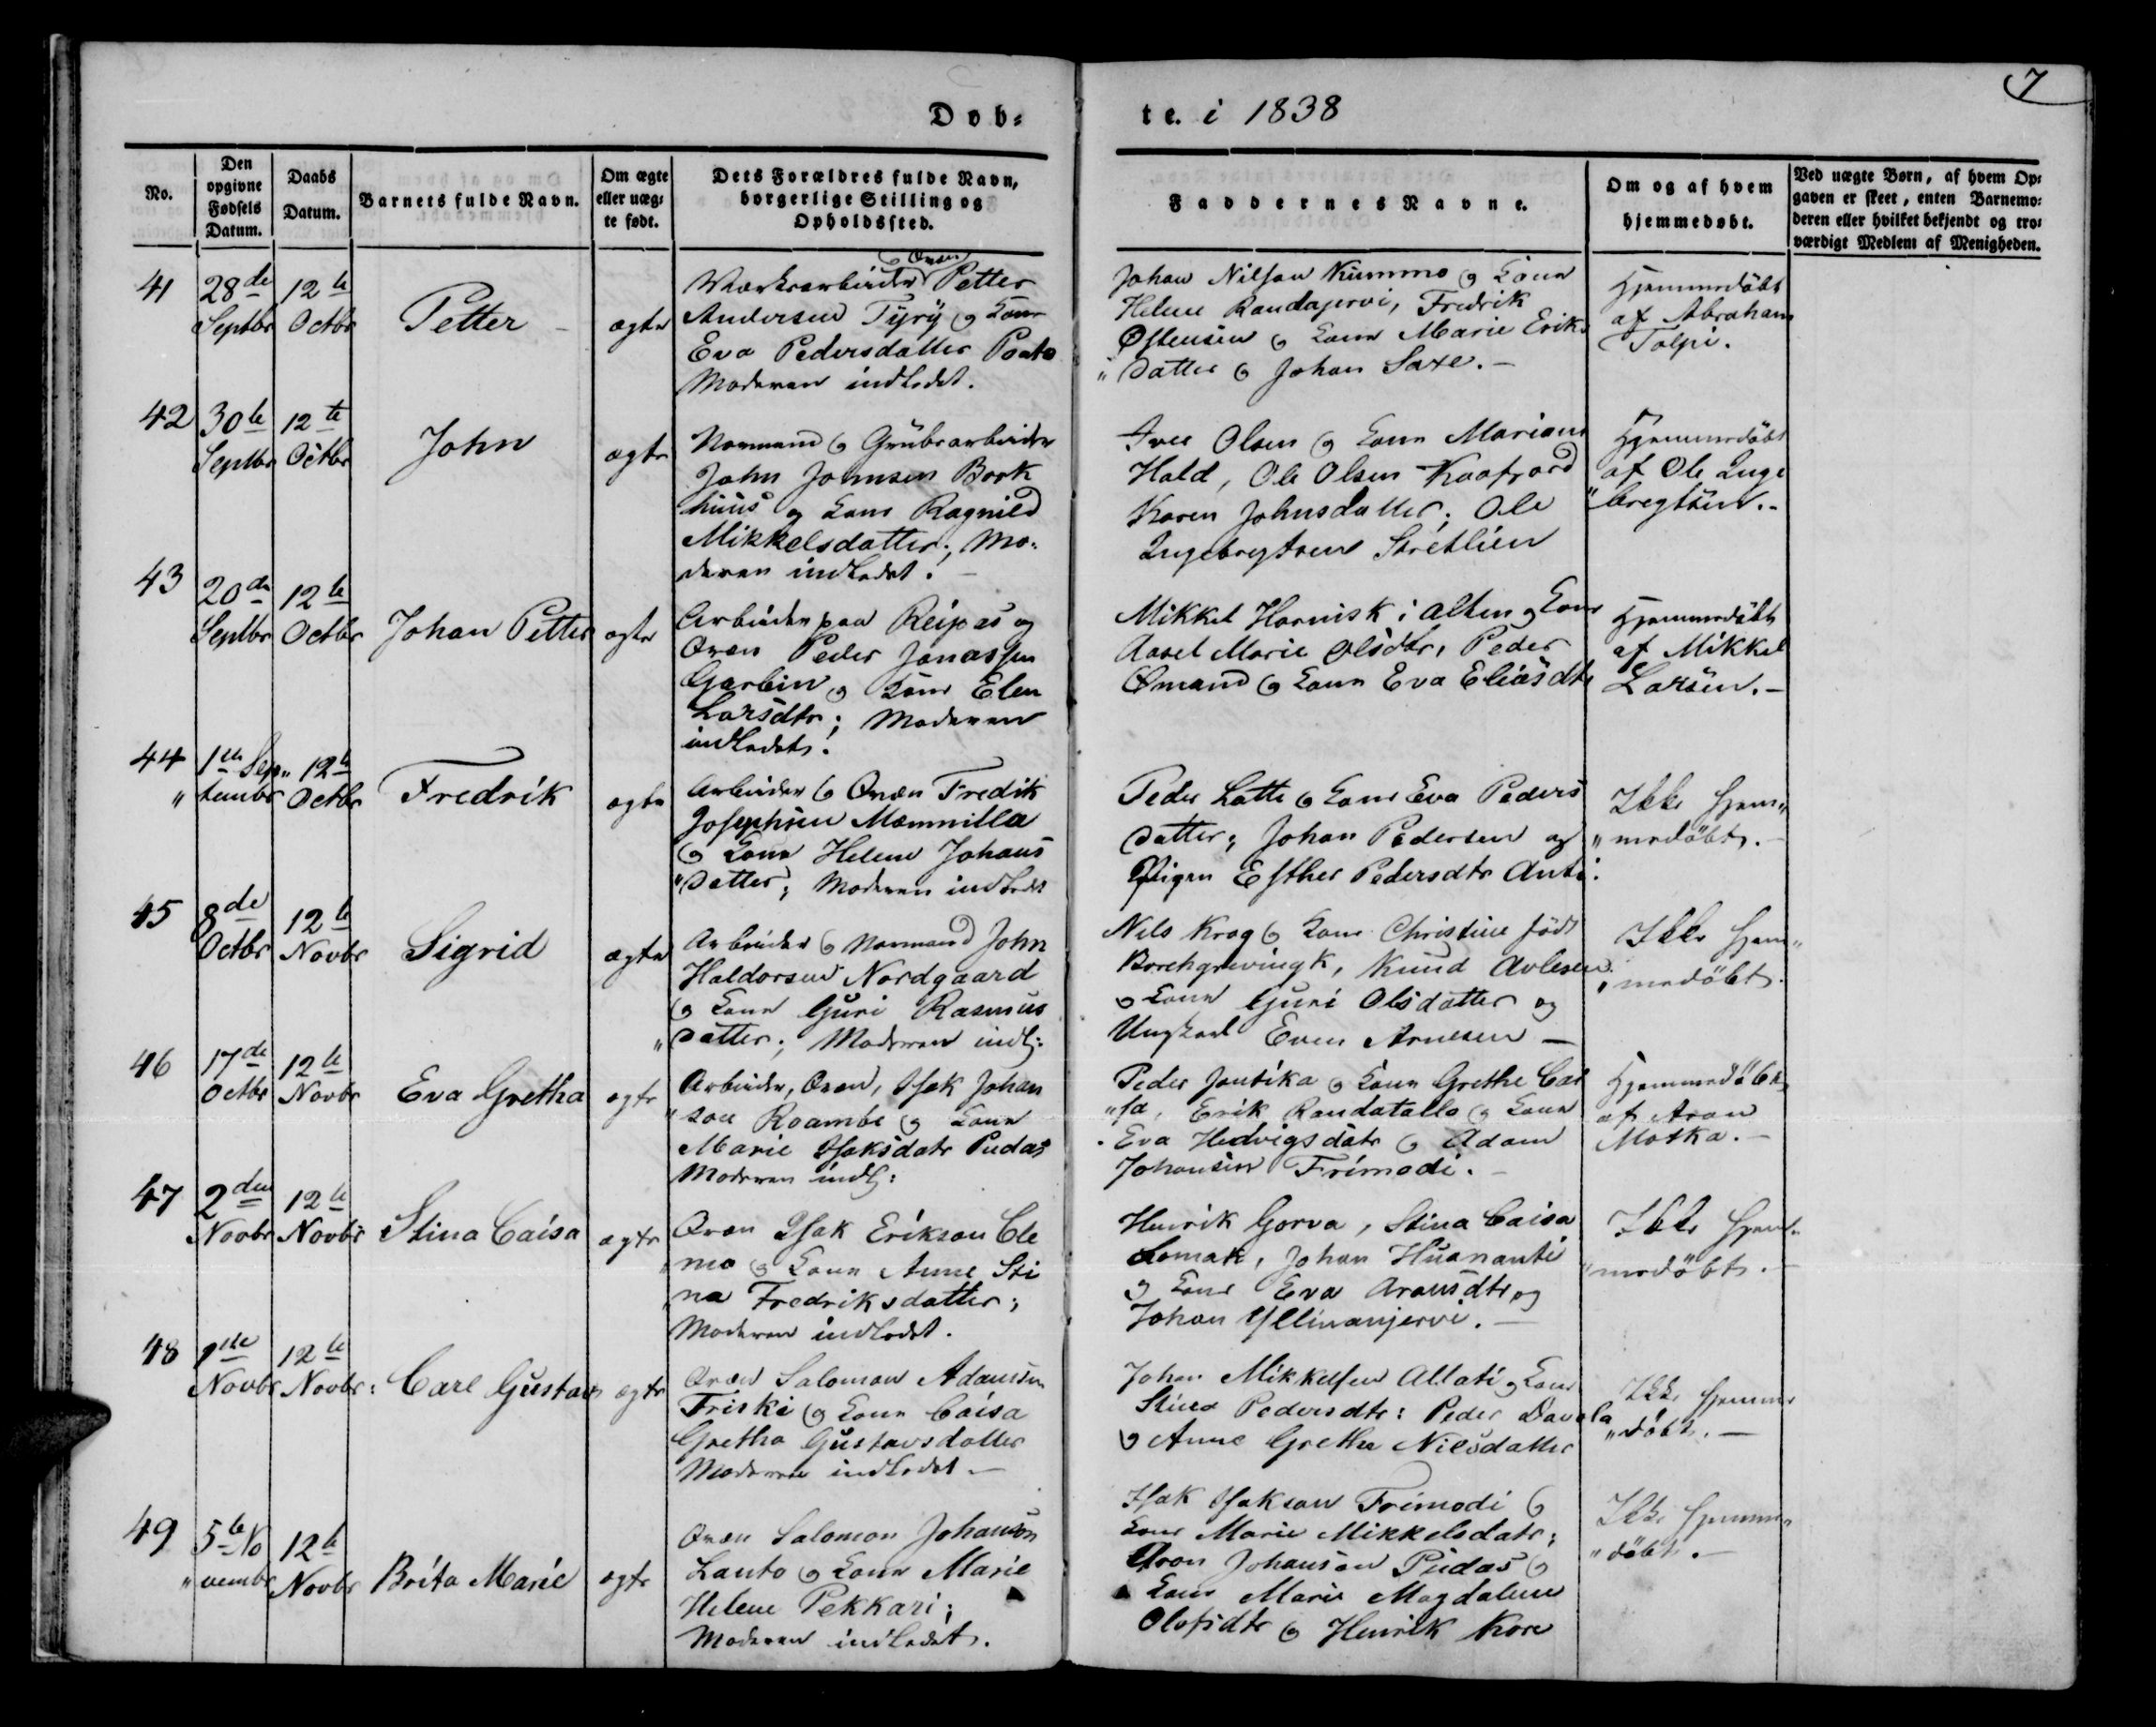 7
Døb-
te. i 1838
No.
Den
opgivne
Fødsels
Datum.
Daabs
Datum.
Barnets fulde Navn.
Om ægte
eller uæg-
te født.
Dets Forældres fulde Navn,
borgerlige Stilling og
Opholdssted.
Faddernes Navne.
Om og af hvem
hjemmedøbt.
Ved uægte Børn, af hvem Op-
gaven er skeet, enten Barnemo-
deren eller hvilket bekjendt og tro-
værdigt Medlem af Menigheden.
41
28de
Septbr
12te
Octbr
Petter
ægte
og Qvæn
Værksarbeider Petter
Andersen Tyry og Kone
Eva Pedersdatter Poato
Moderen indledet.
Johan Nilsen Kummo og Kone
Helene Randajervi, Fredrik
Østensen og Kone Marie Eriks
" datter og Johan Saxe.-
Hjemmedöbt
af Abraham
Tolpi.
42
30te
Septbr
12te
Octbr
John
ægte
Normand og Grubearbeider
John Jonnsen Bork
huus og Kone Ragnild
Mikkelsdatter; Mo-
deren indledet.
Iver Olsen og Kone Mariane
Hald, Ole Olsen Kaafjord
Karen Johnsdatter; Ole
Ingebregtsen Stretlien
Hjemmedöbt
af Ole Inge
"bregtsen.-
43
20de
Septbr
12te
Octbr
Johan Petter
ægte
Arbeider paa Reipas og
Qvæn Peder Jonassen
Garbin og Kone Elen
Larsdtr; Moderen
indledet.
Mikkel Harnisk i Alten og Kone
Axel Marie Olsdtr, Peder
Ømand og Kone Eva Eliasdtr
Hjemmedöbt
af Mikkel
Larsen.-
44
1te Sep"
"tembr
12te
Octbr
Fredrik
ægte
Arbeider og Qvæn Fredik
Josephsen Mæmnilla
og Kone Helene Johans
"datter; Moderen indledet
Peder Latte og Kone Eva Peders
datter; Johan Pedersen og
Pigen Esther Pedersdtr Anti.
Ikke hjem"
"medöbt.-
45
8de
Octbr
12te
Novbr
Sigrid
ægte
Arbeider og Normand John
Haldorsen Nordgaard
og Kone Guri Rasmus
"datter; Moderen indl:
Nils Krog og Kone Christine föd
Borchgrevingk, Knud Avlesen
og Kone Guri Olsdatter og
Ungkarl Even Arnesen -
Ikke hjem"
"medöbt.
46
17de
Octbr
12te
Novbr
Eva Gretha
ægte
Arbeider, Qvæn, Isak Johan
"son Roambe og Kone
Marie Isaksdatr Pudas
Moderen indl:
Peder Jontika og Kone Grethe Cai
"sa, Erik Randatallo og Kone
Eva Hedvigsdatr og Adam
Johansen Frimodi.-
Hjemmedöbt
af Aron
Motka.-
47
2den
Novbr
12te
Novbr
Stina Caisa
ægte
Qvæn Isak Erikson Cle
"mo og Kone Anne Sti
"na Fredriksdatter;
Moderen indledet.
Henrik Gorva, Stina Caisa
Lomak, Johan Huananti
og Kone Eva Aronsdtr og
Johan Yllinanjervi.-
Ikke hjem-
"medöbt.-
48
1ste
Novbr
12te
Novbr:
Carl Gustav
ægte
Qvæn Salomon Adamsen
Friski og Kone Caisa
Gretha Gustavsdatter
Moderen indledet.-
Johan Mikkelsen Allati og Kone
Stina Pedersdtr: Peder Davela
og Anne Grethe Nilsdatter
Ikke hjemme
"döbt.-
49
5te No
"vembr
12te
Novbr
Brita Marie
ægte
Qvæn Salomon Johanson
Lanto og Kone Marie
Helene Pekkari;
Moderen indledet.
Isak Isakson Frimodi og
Kone Marie Mikkelsdatr;
Aron Johanson Pudas og
Kone Marie Magdalene
Olofsdtr og Henrik Kore
Ikke hjemme
"döbt.-